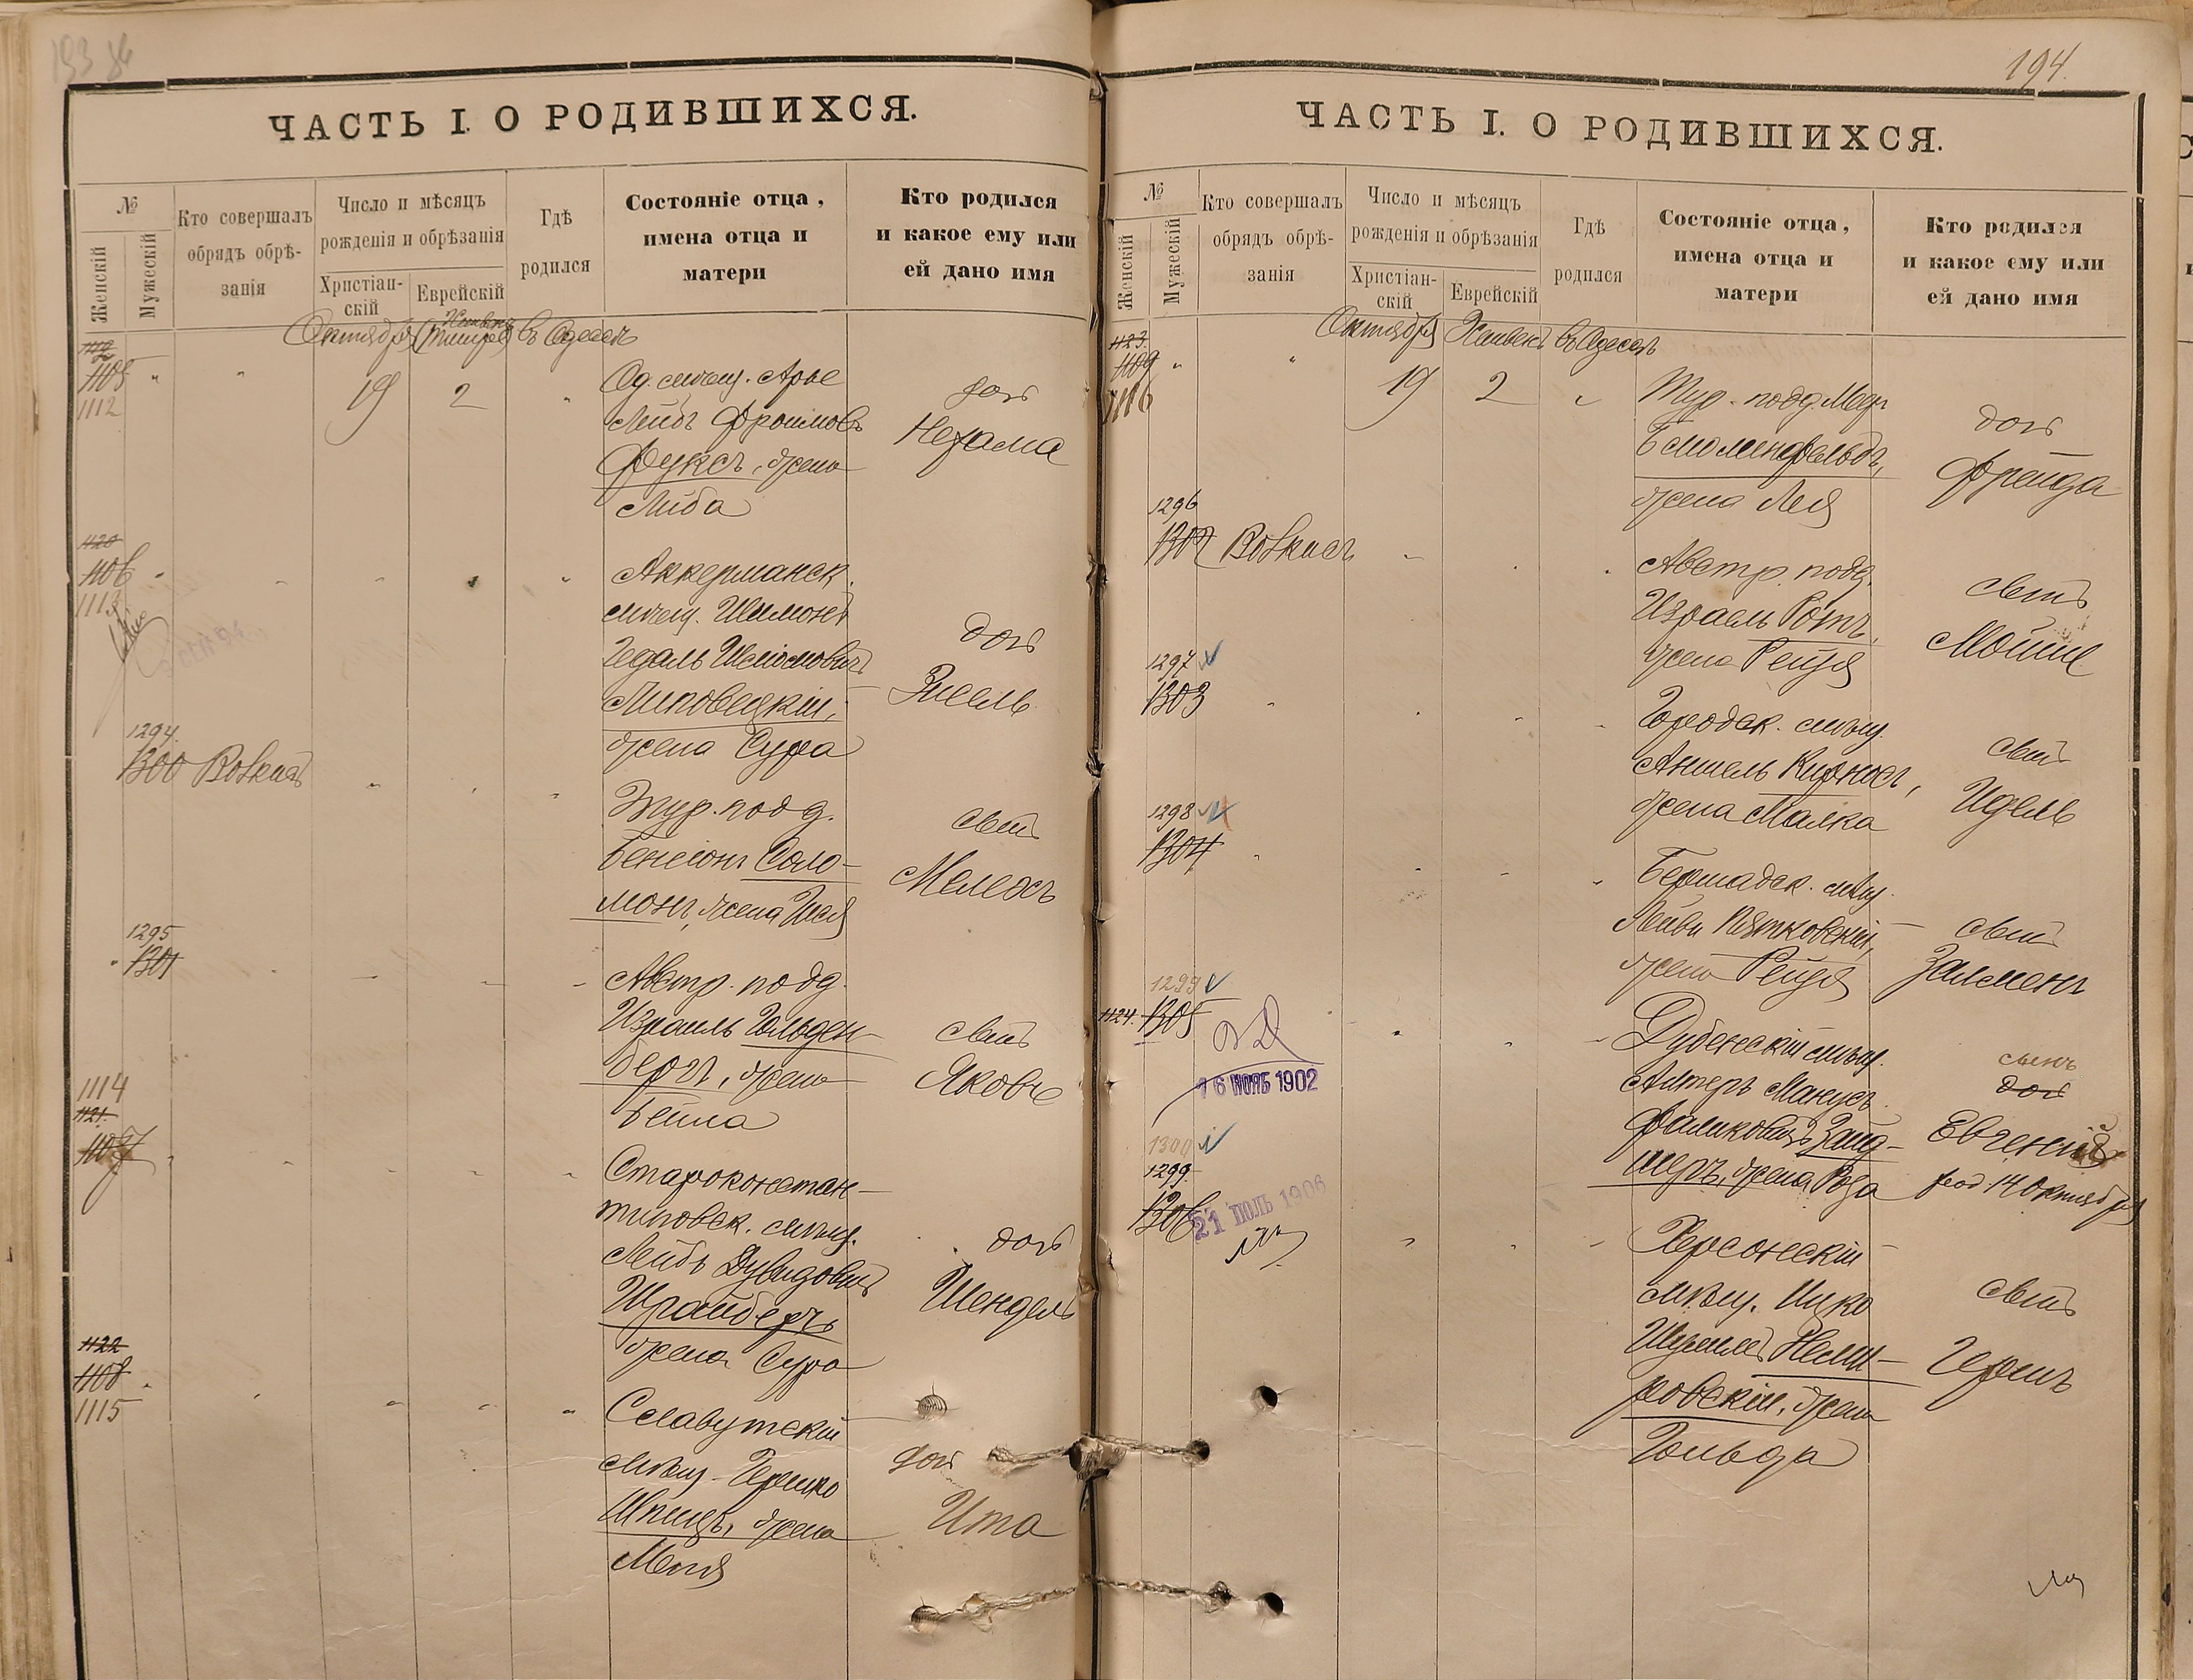 194.
ЧАСТЬ I. О РОДИВШИХСЯ.
№
Женскій
Мужескій
Кто совершалъ
обрядъ обрѣ-
занія
Число и мѣсяцъ
рожденія и обрѣзанія
Христіан-
скій
Еврейскій
Гдѣ
родился
Состояніе отца,
имена отца и
матери
Кто родился
и какое ему или
ей дано имя
Октября
въ Одессѣ
1105
1112
19
2
Од. мѣщ. Арье
Лейбъ Фроимовъ
Фуксъ, жена
Либа
доч
Нехама
1120
1106
1113
Аккерманск.
мѣщ. Шимонъ
Гедаль
Липовецкій,
жена Сура
доч
Зисель
1294.
1300
Тур. подд.
Бенсіонъ Соло-
монъ, жена
сынъ
Мелехъ
1295
1301
Австр. подд.
Израиль Гольден-
бергъ, жена
Бейла
сынъ
Яковъ
1114
1121.
1107
Староконстан-
тиновск. мѣщ.
Лейбъ Дувидовичъ
Шрайберъ
жена Сура
доч
Шендель
1122
1108
1115
Славутскій
мѣщ. Гершко
Шпицъ, жена
доч
Ита
ЧАСТЬ I. О РОДИВШИХСЯ.
№
Женскій
Мужескій
Кто совершалъ
обрядъ обрѣ-
занія
Число и мѣсяцъ
рожденія и обрѣзанія
Христіан-
скій
Еврейскій
Гдѣ
родился
Состояніе отца,
имена отца и
матери
Кто родился
и какое ему или
ей дано имя
Октября
въ Одессѣ
1123.
1109
1116
19
2
Тур. подд.
жена Лея
доч
Фрейда
1296
1302
Австр. подд.
Израель Ротъ,
жена Рейзя
сынъ
Мойше
1297
1303
Городск. мѣщ.
Аншель Кирносъ,
жена Малка
сынъ
Идель
1298
1304
Бершадск. мѣщ.
Лейви Пятковскій,
жена Рейзя
сынъ
Залменъ
1299
1124.
1305
16 НОЯБ 1902
Дубенскій мѣщ.
Алтеръ Манусъ
Фаликовичъ Зайд-
шеръ, жена Роза
сынъ
доч
Евгеній
род. 14 Октября
1300
1299.
1306
21 ІЮЛЬ 1906
Херсонскій
мѣщ. Ицко
Шумилъ Неми-
ровскій, жена
Гольда
сынъ
Гершъ